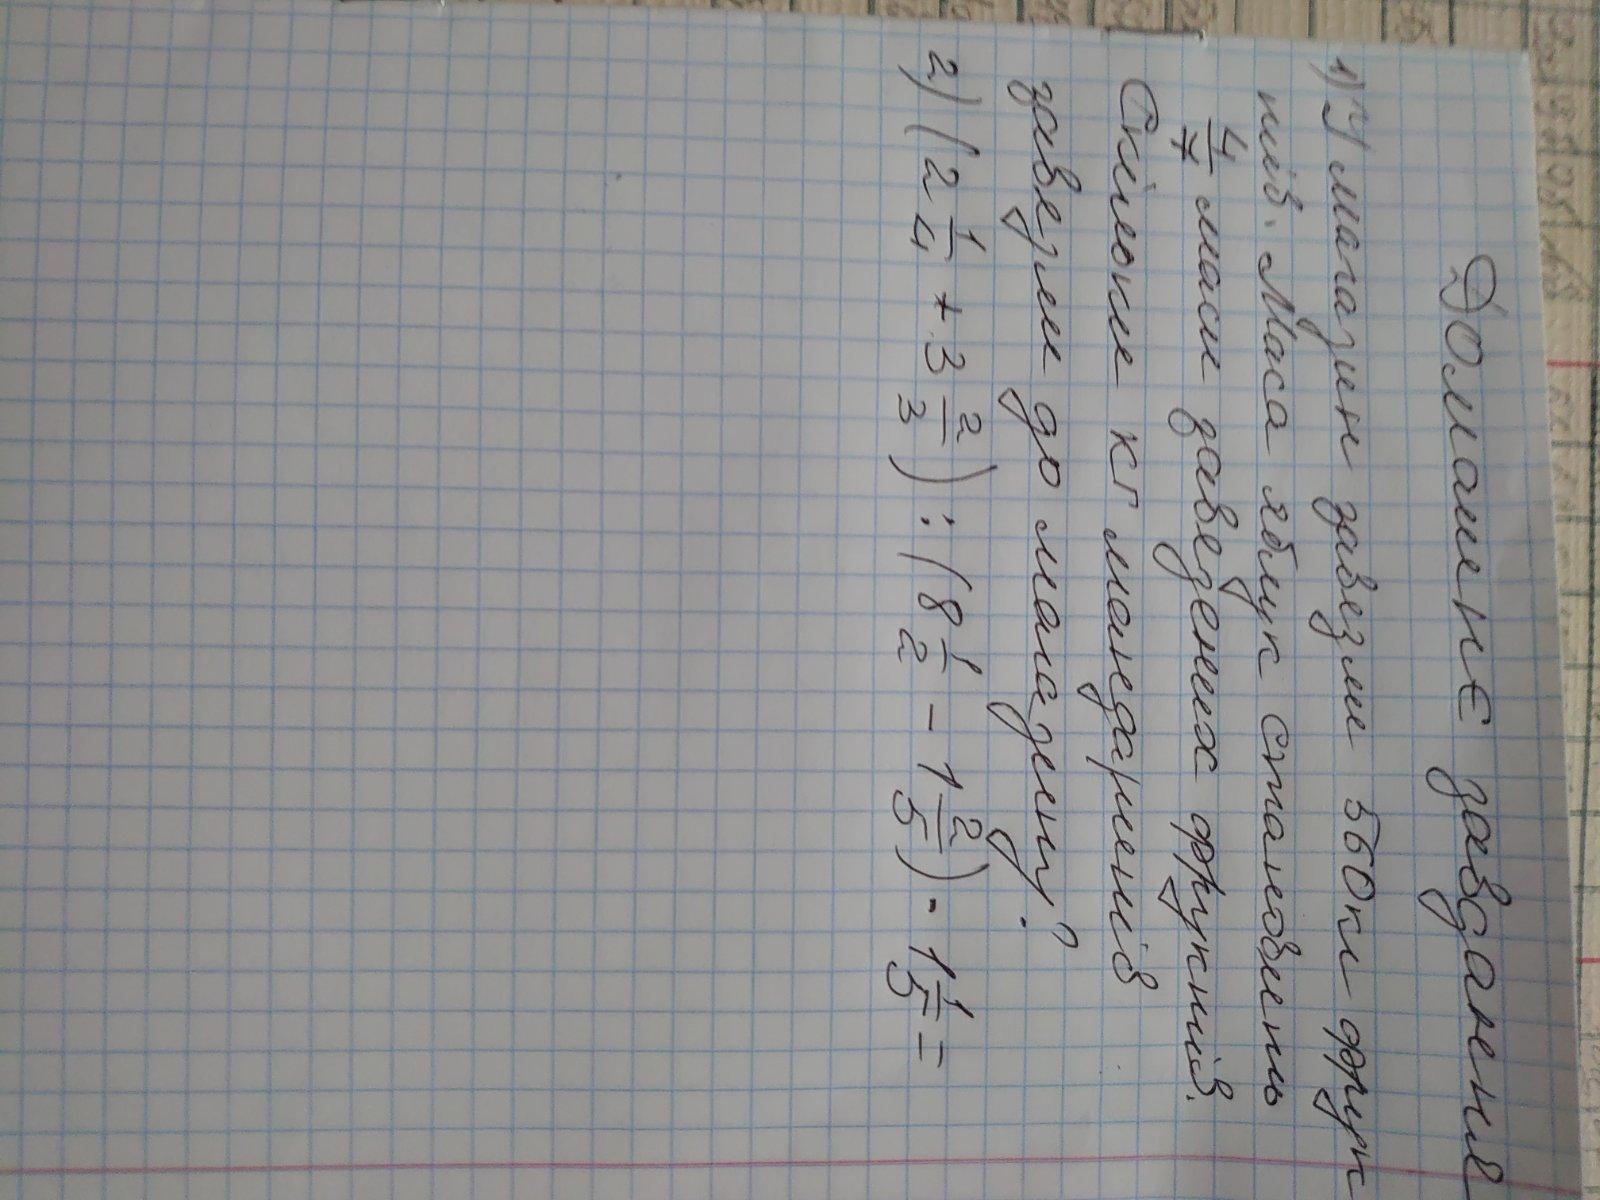 Домашнє завдання
1) У магазин завезли 560кг фрук
тів. Маса яблук становить
4/7 маси завезених фруктів.
Скільки кг мандаринів
завезли до магазину?
2) (2 1/4 + 3 2/3) : (8 1/2 - 1 2/5) - 1 1/5 =